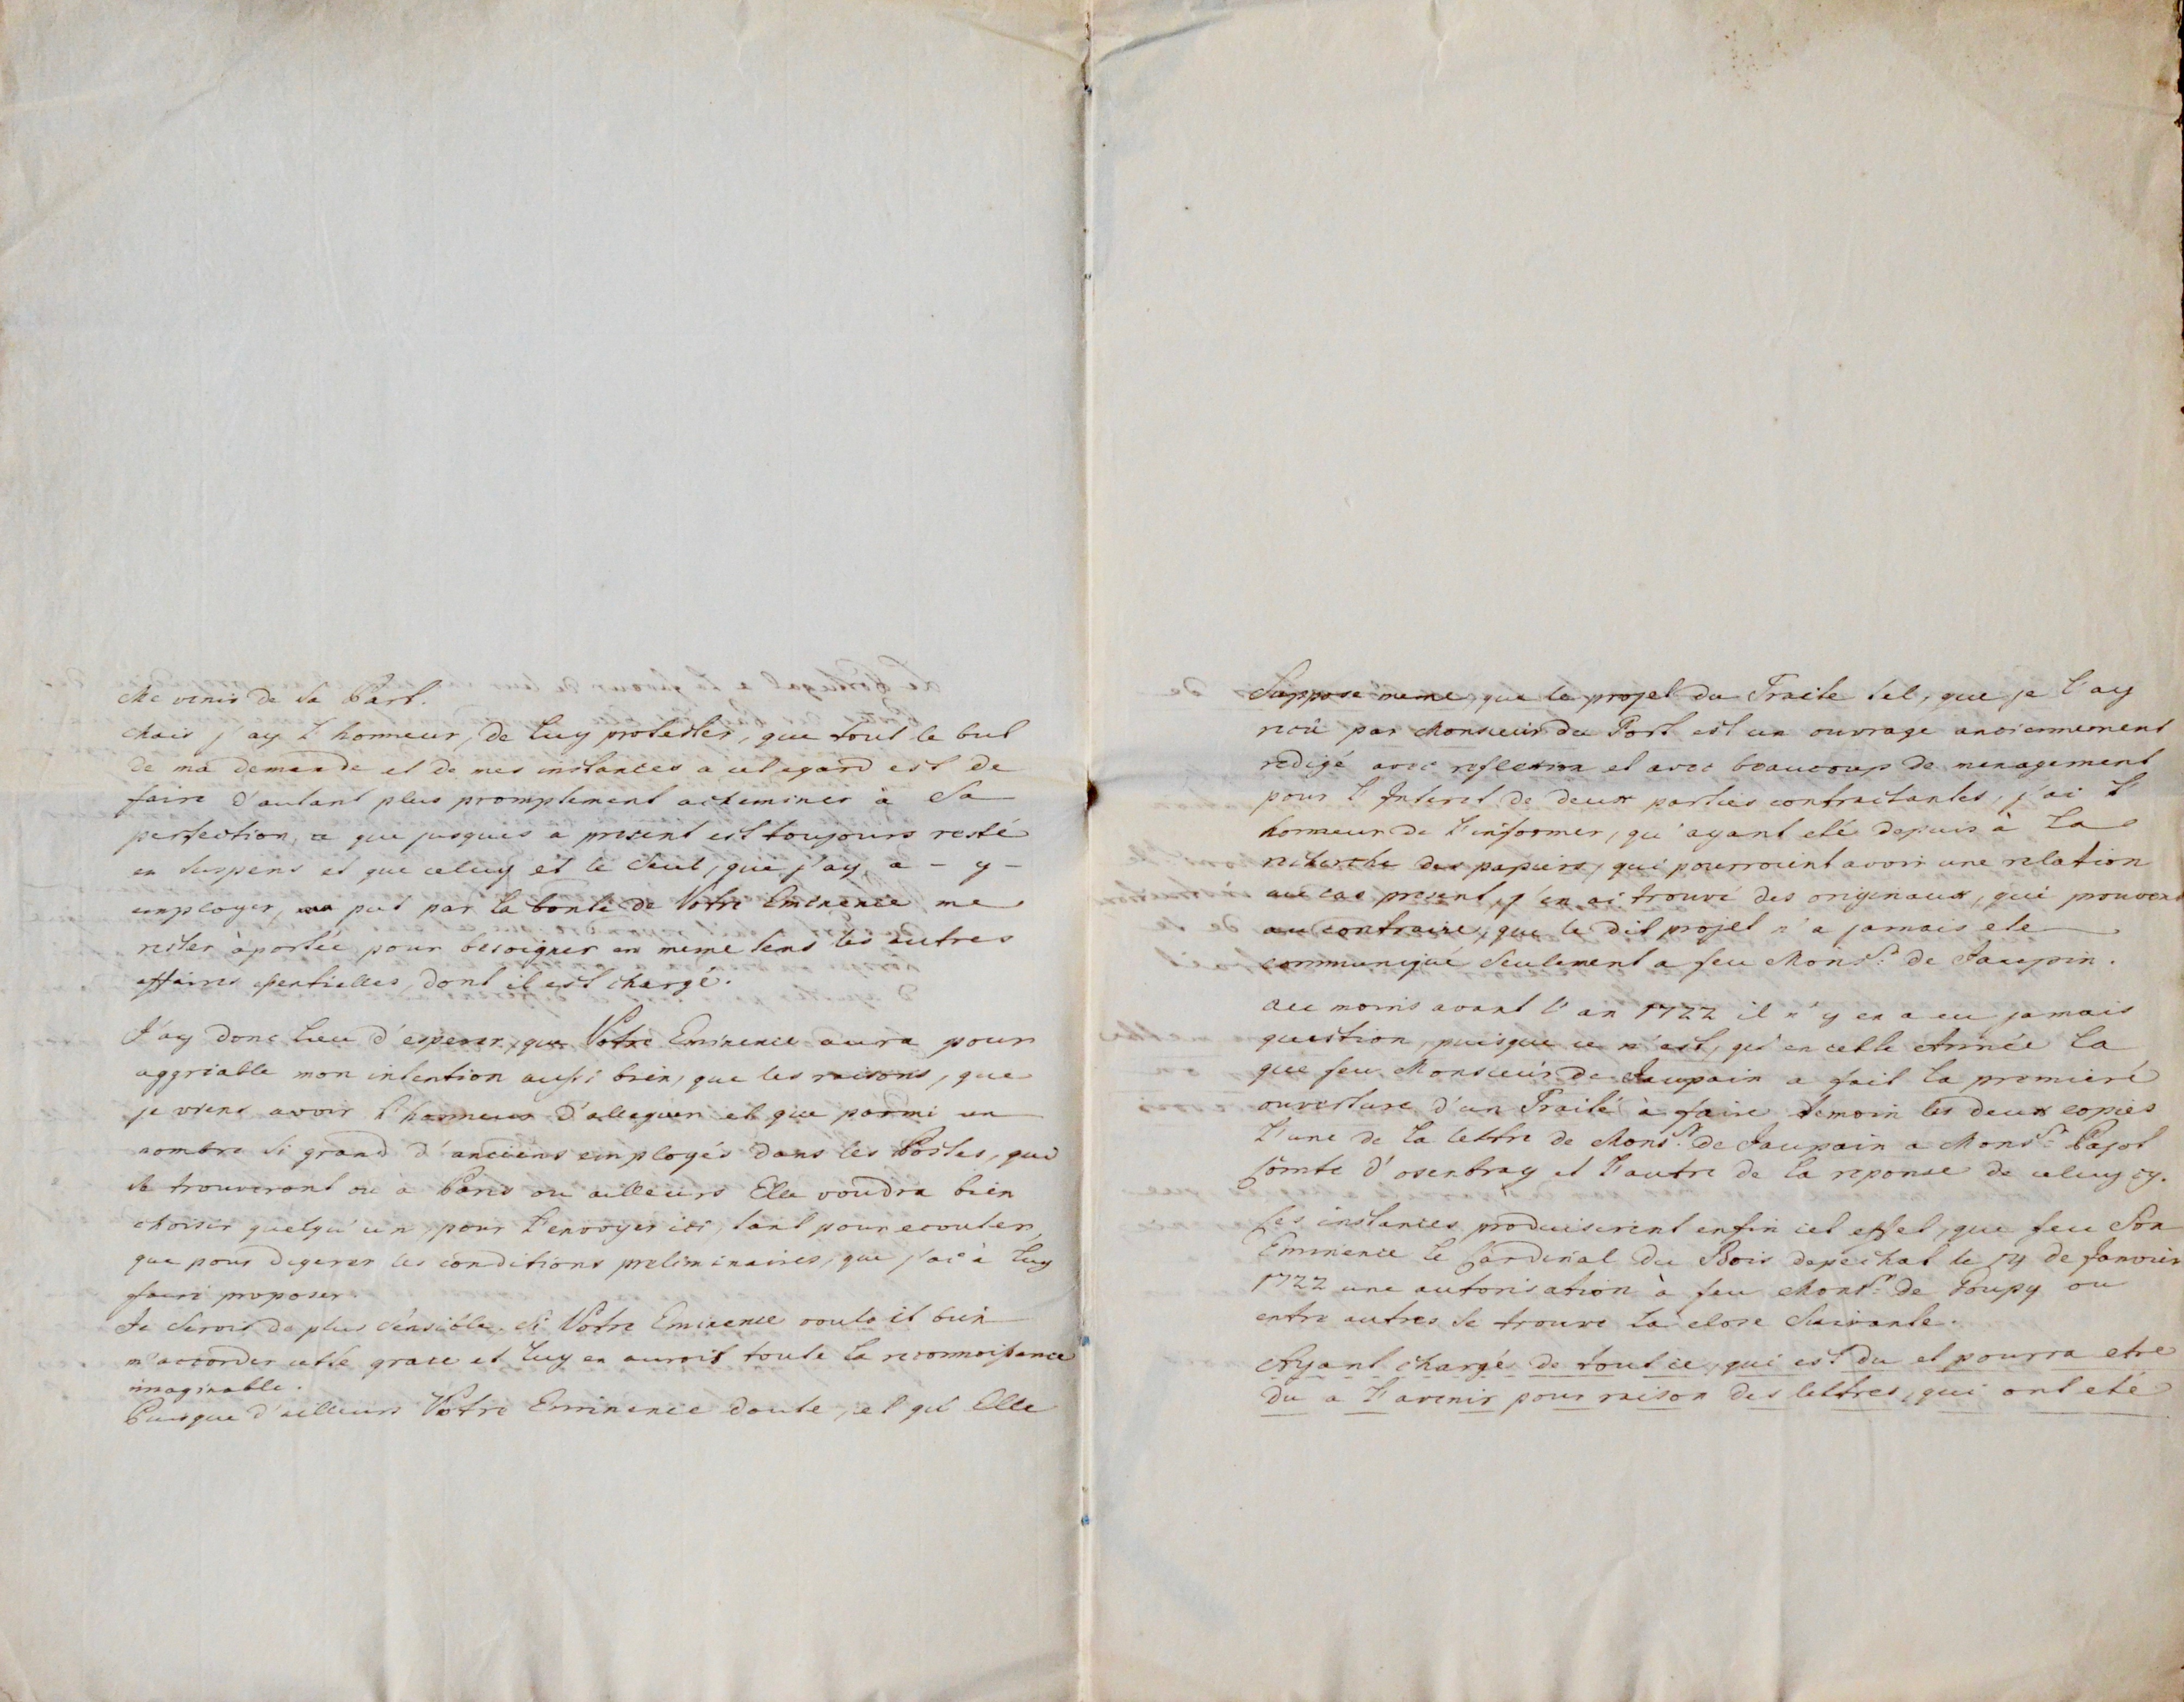 Me venir de sa Part.
Mais j'ay l'honneur, de luy protester, que tout le but
de ma demande et de mes instances a cet egard est de
faire d'autant plus promptement acheminer à sa
perfection, ce que jusques a present est toujours resté
en suspens et que celuy et le seul, que j'ay, a - y -
employer, put par la bonté de Votre Eminence me
rester à portée pour besoigner en meme tems les autres
affaires essentielles, dont il est chargé.
J'ay donc lieu d'esperer, que Votre Eminence aura pour
aggriable mon intention aussi bien, que les raisons, que
je viens avoir l'honneur d'alleguer et que parmi un
nombre si grand d'anciens employés dans les Postes, qui
se trouveront ou a Paris ou ailleurs Elle voudra bien
choisir quelqu'un, pour l'envoyer ici, tant pour ecouter,
que pour digerer les conditions preliminaires, que j'ai à luy
faire proposer.
Je serois da plus sensible. si Votre Eminence vouloit bien
m'accorder cette grace et luy en aurois toute la reconnoissance
imaginable.
Puisque d'ailleurs Votre Eminence doute, et qu'Elle
Suppose meme, que le projet du Traite tel, que je l'ay
recû par Monsieur du Port est un ouvrage anciennement
redigé avec reflexion et avec beaucoup de menagement
pour l'Interet de deux parties contractantes, j'ai l'
honneur de l'informer, qu'ayant eté depuis à la
recherche des papiers, qui pourroient avoir une relation
au cas present, j'en ai trouvé des originaux, qui prouvent
au contraire, que le dit projet n'a jamais ete
communiqué seulement a feu Monsr. de Jaupin.
au moins avant l'an 1722 il n'y en a eu jamais
question, puisque ce n'est, qu'en cette Année la
que feu Monsieur de Jaupain a fait la premiere
ouverture d'un Traité à faire temoin les deux copies
l'une de la lettre de Monsr. de Jaupain a Monsr. Pajot
Comte d'osenbray et l'autre de la reponse de celuy cy.
Ces instances produisirent enfin cet effet, que feu Son
Eminence le Cardinal Du Bois depechat le de Janvier
1722 une autorisation à feu Monsr. de ou
entre autres se trouve la close suivante.
Ayant chargés de tout ce, qui est du et pourra etre
du a l'avenir pour raison des lettres, qui ont eté